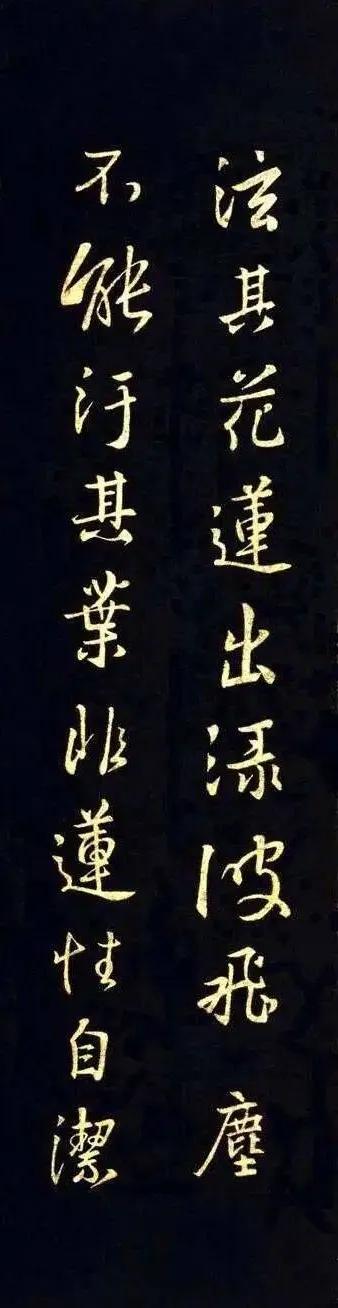 泫其花蓮出渌波飛塵
不能汙其葉非蓮性自潔